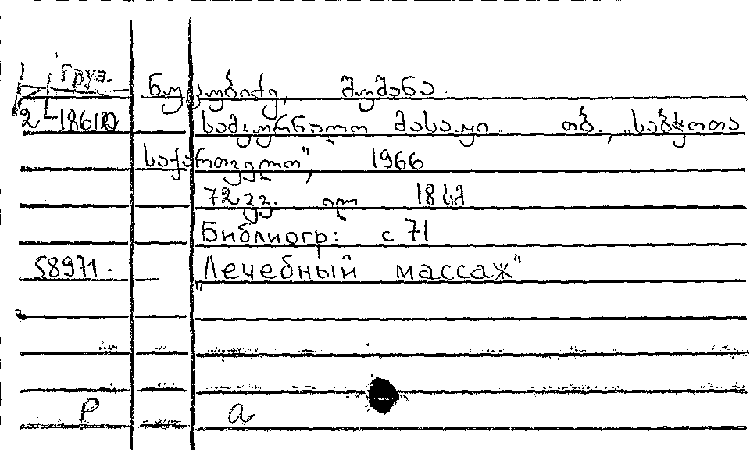 груз.
ნუცუბიძე, შუშანა.
2-18610 სამკურნალო მასაჟი. თბ., საბჭოთა
საქართველო", 1966
72 გვ. ილ 18 სმ
Библиогр: с 71
58971. „Лечебный массаж"
Р а